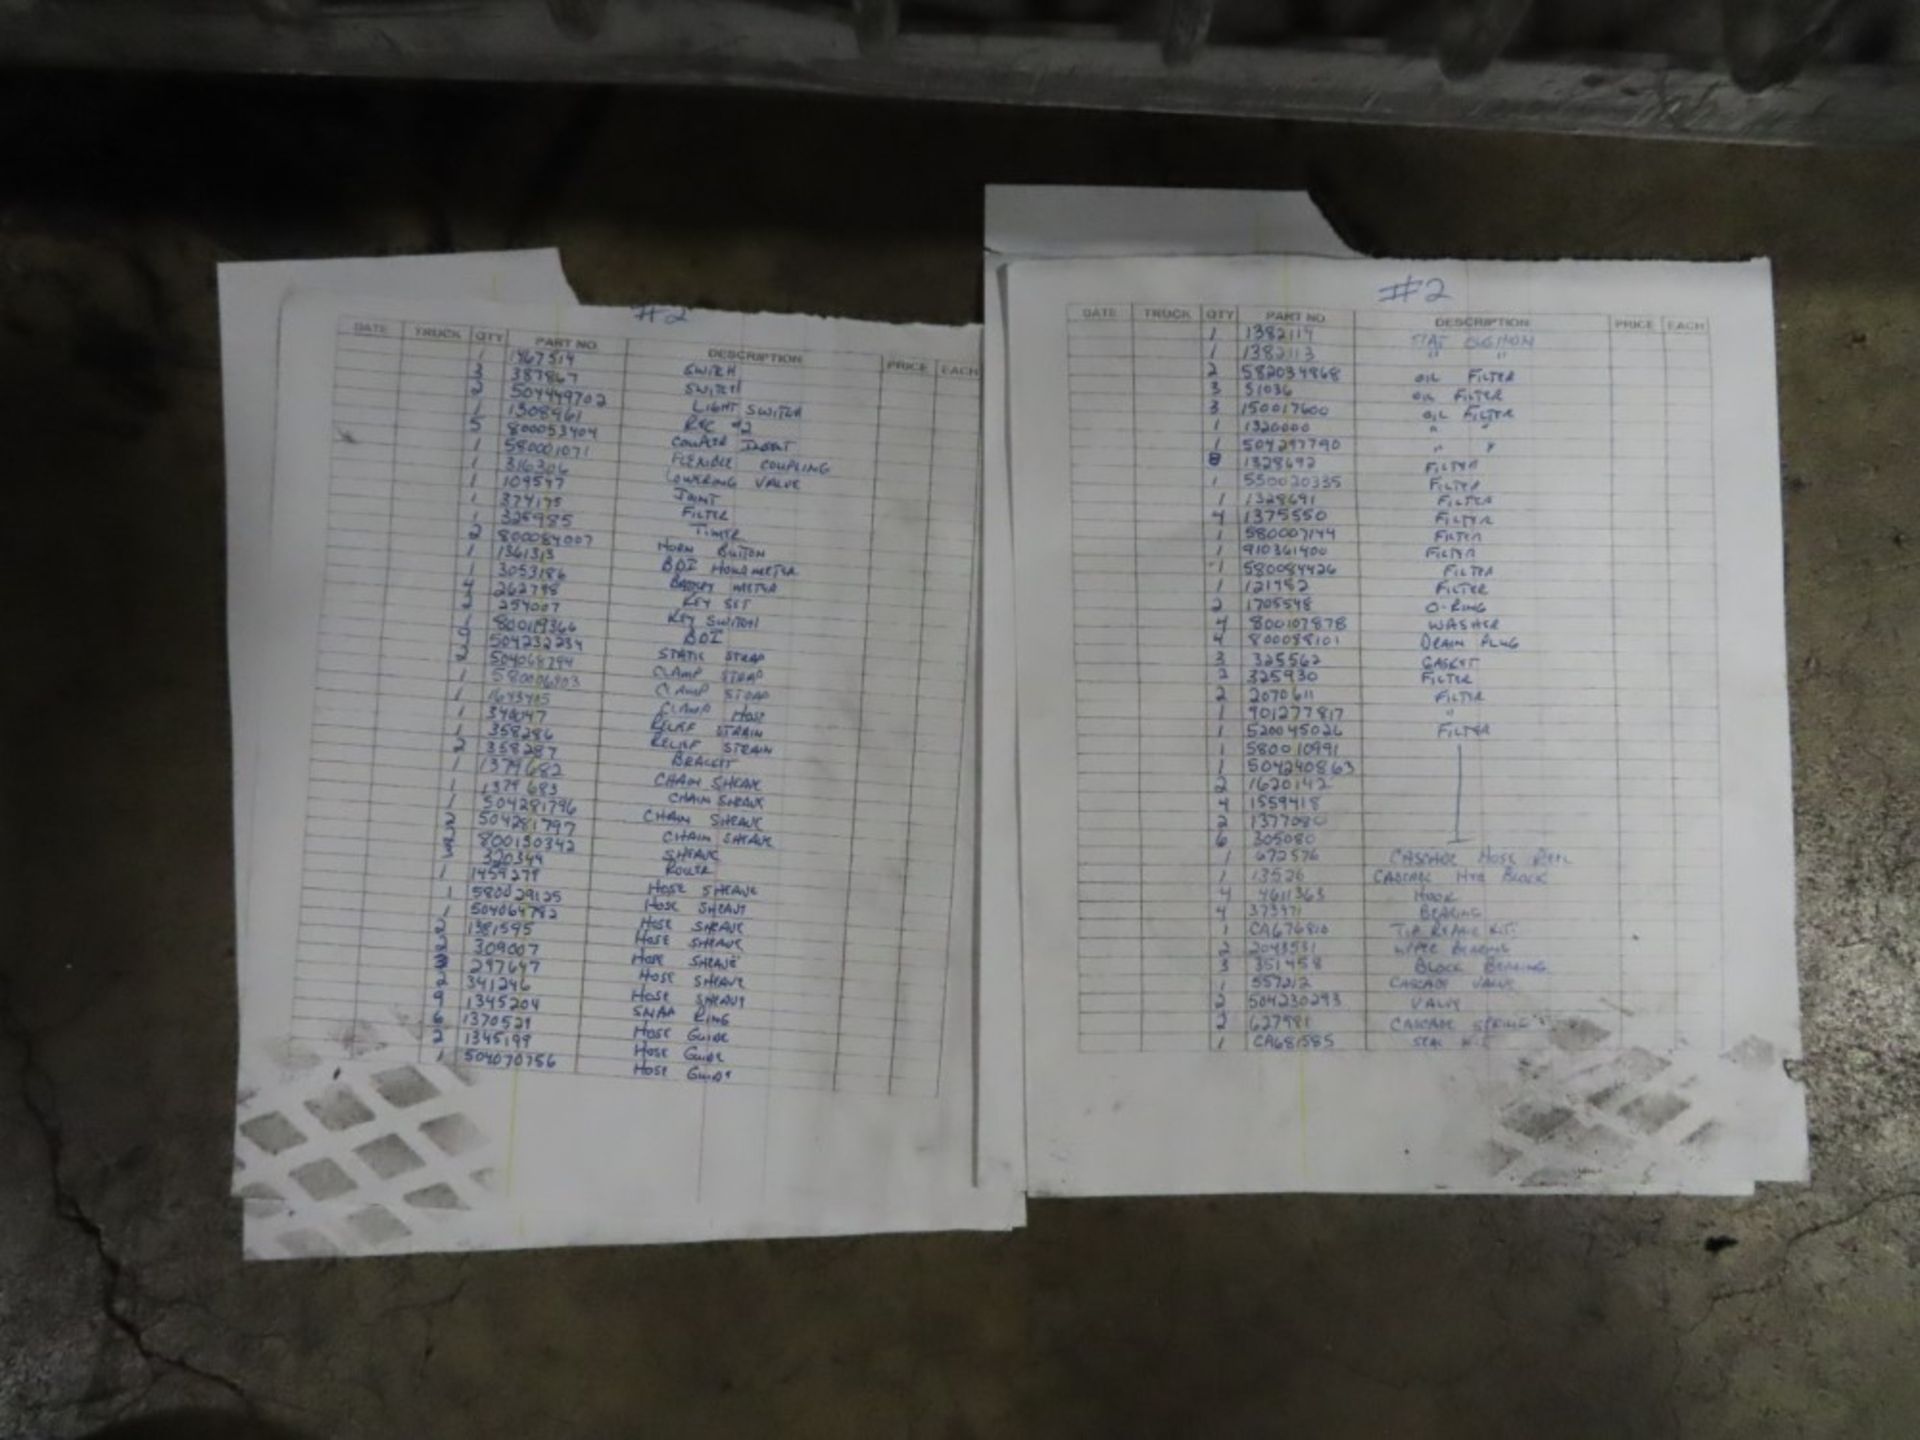 #2
DATE TRUCK QTY PART NO. DESCRIPTION PRICE EACH
1 1467514 SWITCH
3 387867 SWITCH
2 504449702 LIGHT SWITCH
1 1308961 REC #2
5 800053404 COUPLER INSERT
1 580001071 FLEXIBLE COUPLING
1 316306 LOWERING VALVE
1 109547 JOINT
1 374175 FILTER
1 325985 TIMER
2 800084007 HORN BUTTON
1 1361313 BDI HOURMETER
1 3053186 BATTERY METER
4 262798 KEY SET
2 254007 KEY SWITCH
800119366 BDI
504232234 STATIC STRAP
504068794 CLAMP STRAP
1 580006803 CLAMP STRAP
1 1643405 CLAMP HOSE
1 340047 RELIEF STRAIN
1 358286 RELIEF STRAIN
2 358287 BRACKET
1 1379682 CHAIN SHEAVE
1 1379683 CHAIN SHEAVE
1 504281796 CHAIN SHEAVE
2 504281797 CHAIN SHEAVE
800130342 SHEAVE
320349 ROLLER
1 1459279 HOSE SHEAVE
1 580029125 HOSE SHEAVE
1 504064782 HOSE SHEAVE
2 1381595 HOSE SHEAVE
309007 HOSE SHEAVE
3 297647 HOSE SHEAVE
2 341246 HOSE SHEAVE
9 1345204 SNAP RING
6 1370521 HOSE GUIDE
2 1345199 HOSE GUIDE
1 504070756 HOSE GUIDE
#2
DATE TRUCK QTY PART NO. DESCRIPTION PRICE EACH
1 1382114 SEAT CUSHION
1 1382113 " "
2 582034868 OIL FILTER
3 51036 OIL FILTER
3 150017600 OIL FILTER
1 1320000 " "
1 504297790 " "
8 1328692 FILTER
1 550020335 FILTER
1 1328691 FILTER
4 1375550 FILTER
1 580007144 FILTER
1 910361400 FILTER
1 580084426 FILTER
1 121982 FILTER
2 1705548 O-RING
4 800107878 WASHER
4 800088101 DRAIN PLUG
3 325562 GASKET
2 325930 FILTER
2 2070611 FILTER
1 901277817 "
1 520045026 FILTER
1 580010991
1 504240863
2 1620142
4 1559418
2 1377080
6 305080
1 672576 CASCADE HOSE REEL
1 13526 CASCADE HYD BLOCK
4 4611363 HOOK
4 373971 BEARING
1 CA676810 TIP REPAIR KIT
2 2043531 UPPER BEARING
3 351458 BLOCK BEARING
1 557212 CASCADE VALVE
2 504230293 VALVE
2 627981 CASCADE SPRING
1 CA681585 SEAL KIT